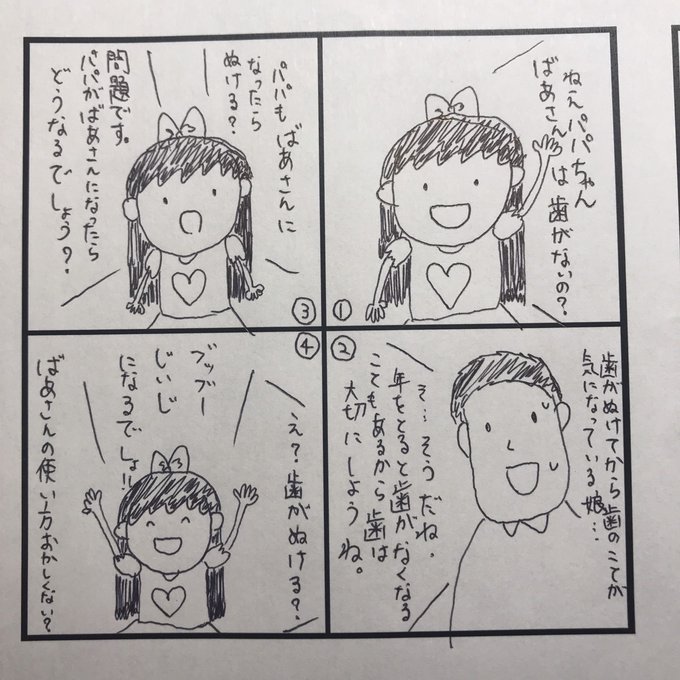 ①
ねえパパちゃん
ばあさんは歯がないの？
②
歯がぬけてから歯のことが
気になっている娘…
そ…そうだね。
年をとると歯がなくなる
こともあるから歯は
大切にしようね。
③
パパもばあさんに
なったら
ぬける？
問題です。
パパがばあさんになったら
どうなるでしょう？
④
え？歯がぬける？
ブッブー
じいじ
になるでしょ!!
ばあさんの使い方おかしくない？